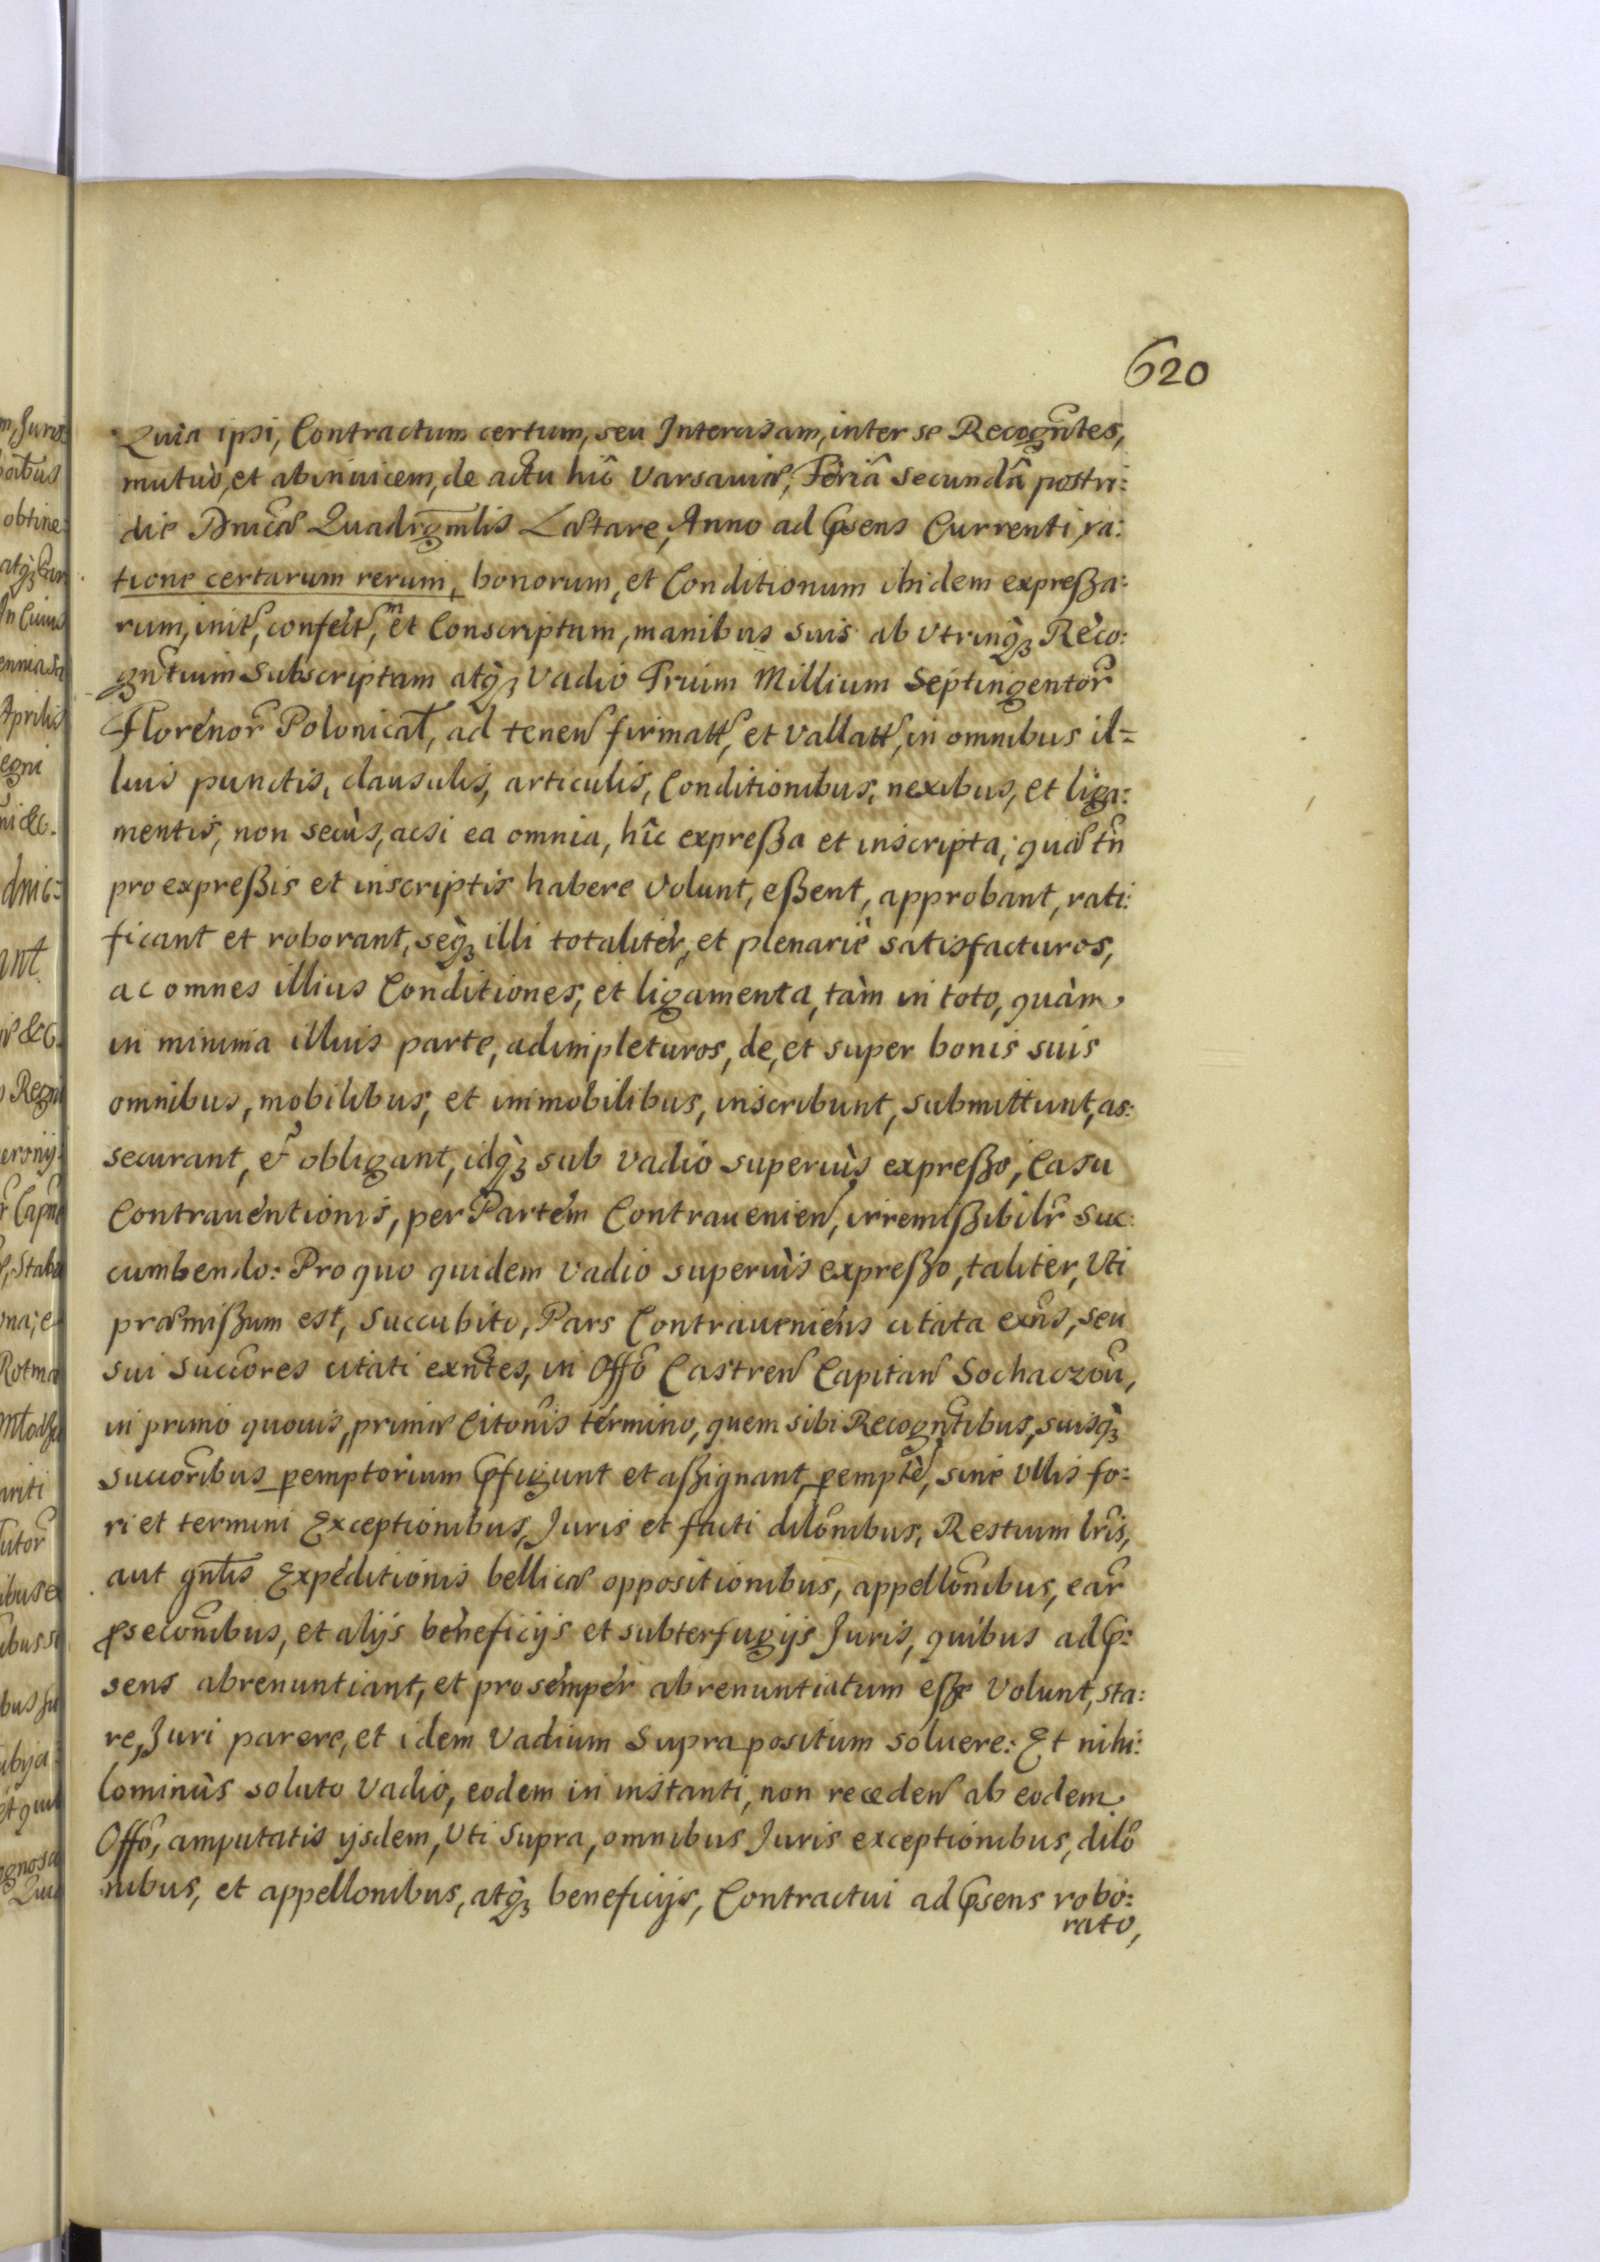 620
Quia ipsi, Contractum certum, seu Intercisam, inter se Recogñtes,
mutuò, et ab inuicem, de actu hîc Varsauiæ, Feriâ secundâ postri:
die Dnicæ Quadrgmlis Lætare, Anno ad Psens Currenti, ra:
tione certarum rerum, bonorum, et Conditionum ibidem expreßa:
rum, init, confect, et Conscriptam, manibus suis ab vtrinq̀ʒ Reco:
gñtium Subscriptam atq̀ʒ vadio Trium Millium Septingentor̃
Florenor̃ Polonical, ad tenen firmatt, et Vallatt, in omnibus il=
lius punctis, clausulis, articulis, Conditionibus, nexibus, et liga:
mentis, non secùs, acsi ea omnia, hîc expreßa et inscripta, quæ tñ
pro expreßis et inscriptis habere Volunt, eßent, approbant, rati:
ficant et roborant, seq̀ʒ illi totalitèr, et plenariè satisfacturos,
ac omnes illius Conditiones, et ligamenta, tàm in toto, quàm
in minima illius parte, adimpleturos, de, et super bonis suis
omnibus, mobilibus, et immobilibus, inscribunt, submittunt, as:
securant, et obligant, idq̀ʒ sub vadio superiùs expreßo, Casu
Contrauentionis, per Partem Contrauenien, irremißibilr̃ suc:
cumbendo: Pro quo quidem vadio superiùs expreßo, taliter, Vti
præmißum est, succubito, Pars Contraueniens citata exñs, seu
sui succores citati exñtes, in Offõ Castren Capitan Sochaczou,
in primo quouis, primæ Citonis termino, quem sibi Recogñtibus, suisq̀ʒ
succoribus pemptorium Pfigunt et aßignant, pemptè, sine Vllis fo:
ri et termini Exceptionibus, Juris et facti dilonibus, Restium lris,
aut gñlis Expeditionis bellicæ oppositionibus, appellonibus, ear̃
pseconibus, et alijs beneficijs et subterfugijs Juris, quibus ad P:
sens abrenuntiant, et pro sempèr abrenuntiatum eße Volunt, sta:
re, Juri parere, et idem Vadium Supra positum soluere: Et nihi:
lominùs soluto Vadio, eodem in instanti, non receden ab eodem
Offõ, amputatis ijsdem, Vti supra, omnibus Juris exceptionibus, dilo
nibus, et appellonibus, atq̀ʒ beneficijs, Contractui ad Psens robo:
rato,